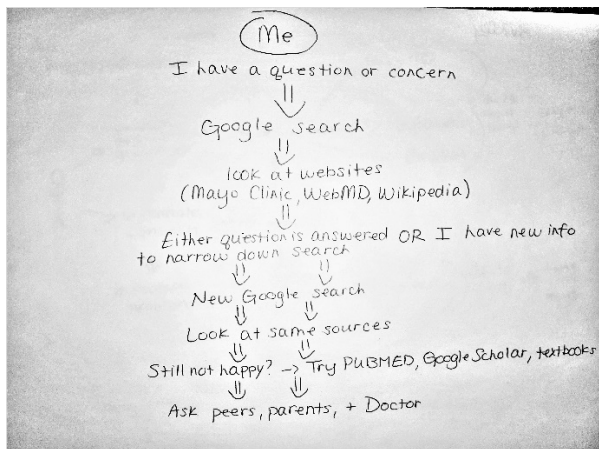 Me
I have a question or concern
Google search
look at websites
(Mayo Clinic, WebMD, Wikipedia)
Either question is answered OR I have new info
to narrow down search
New Google search
Look at same sources
Still not happy? → Try PUBMED, Google Scholar, textbooks
Ask peers, parents, + Doctor